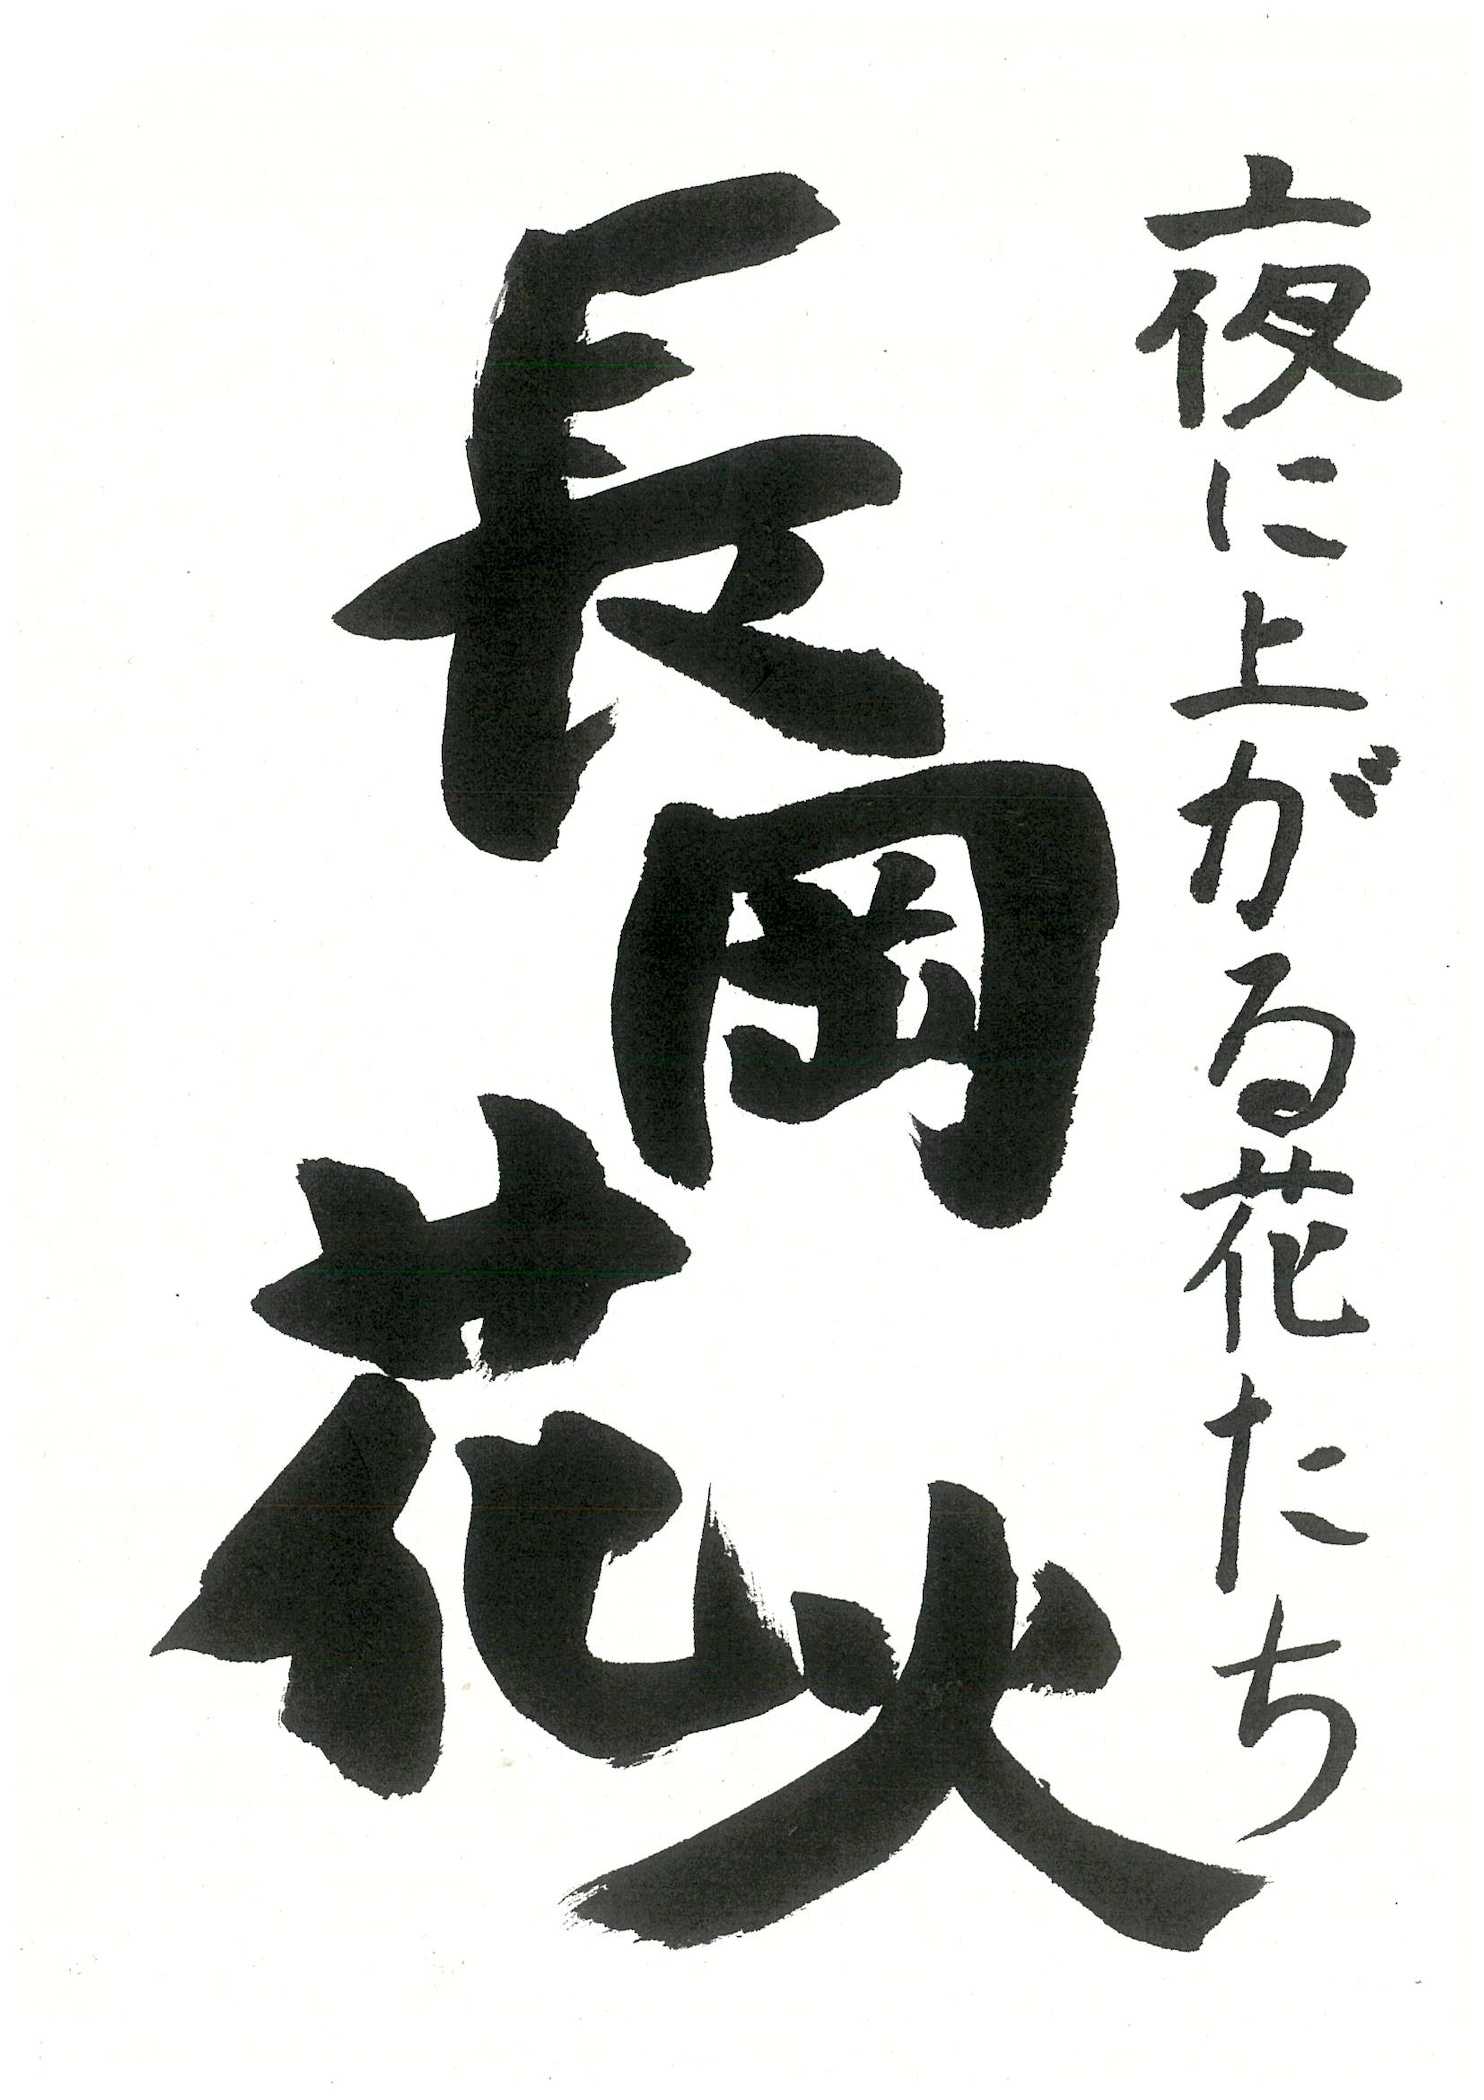 夜に上がる花たち
長岡花火